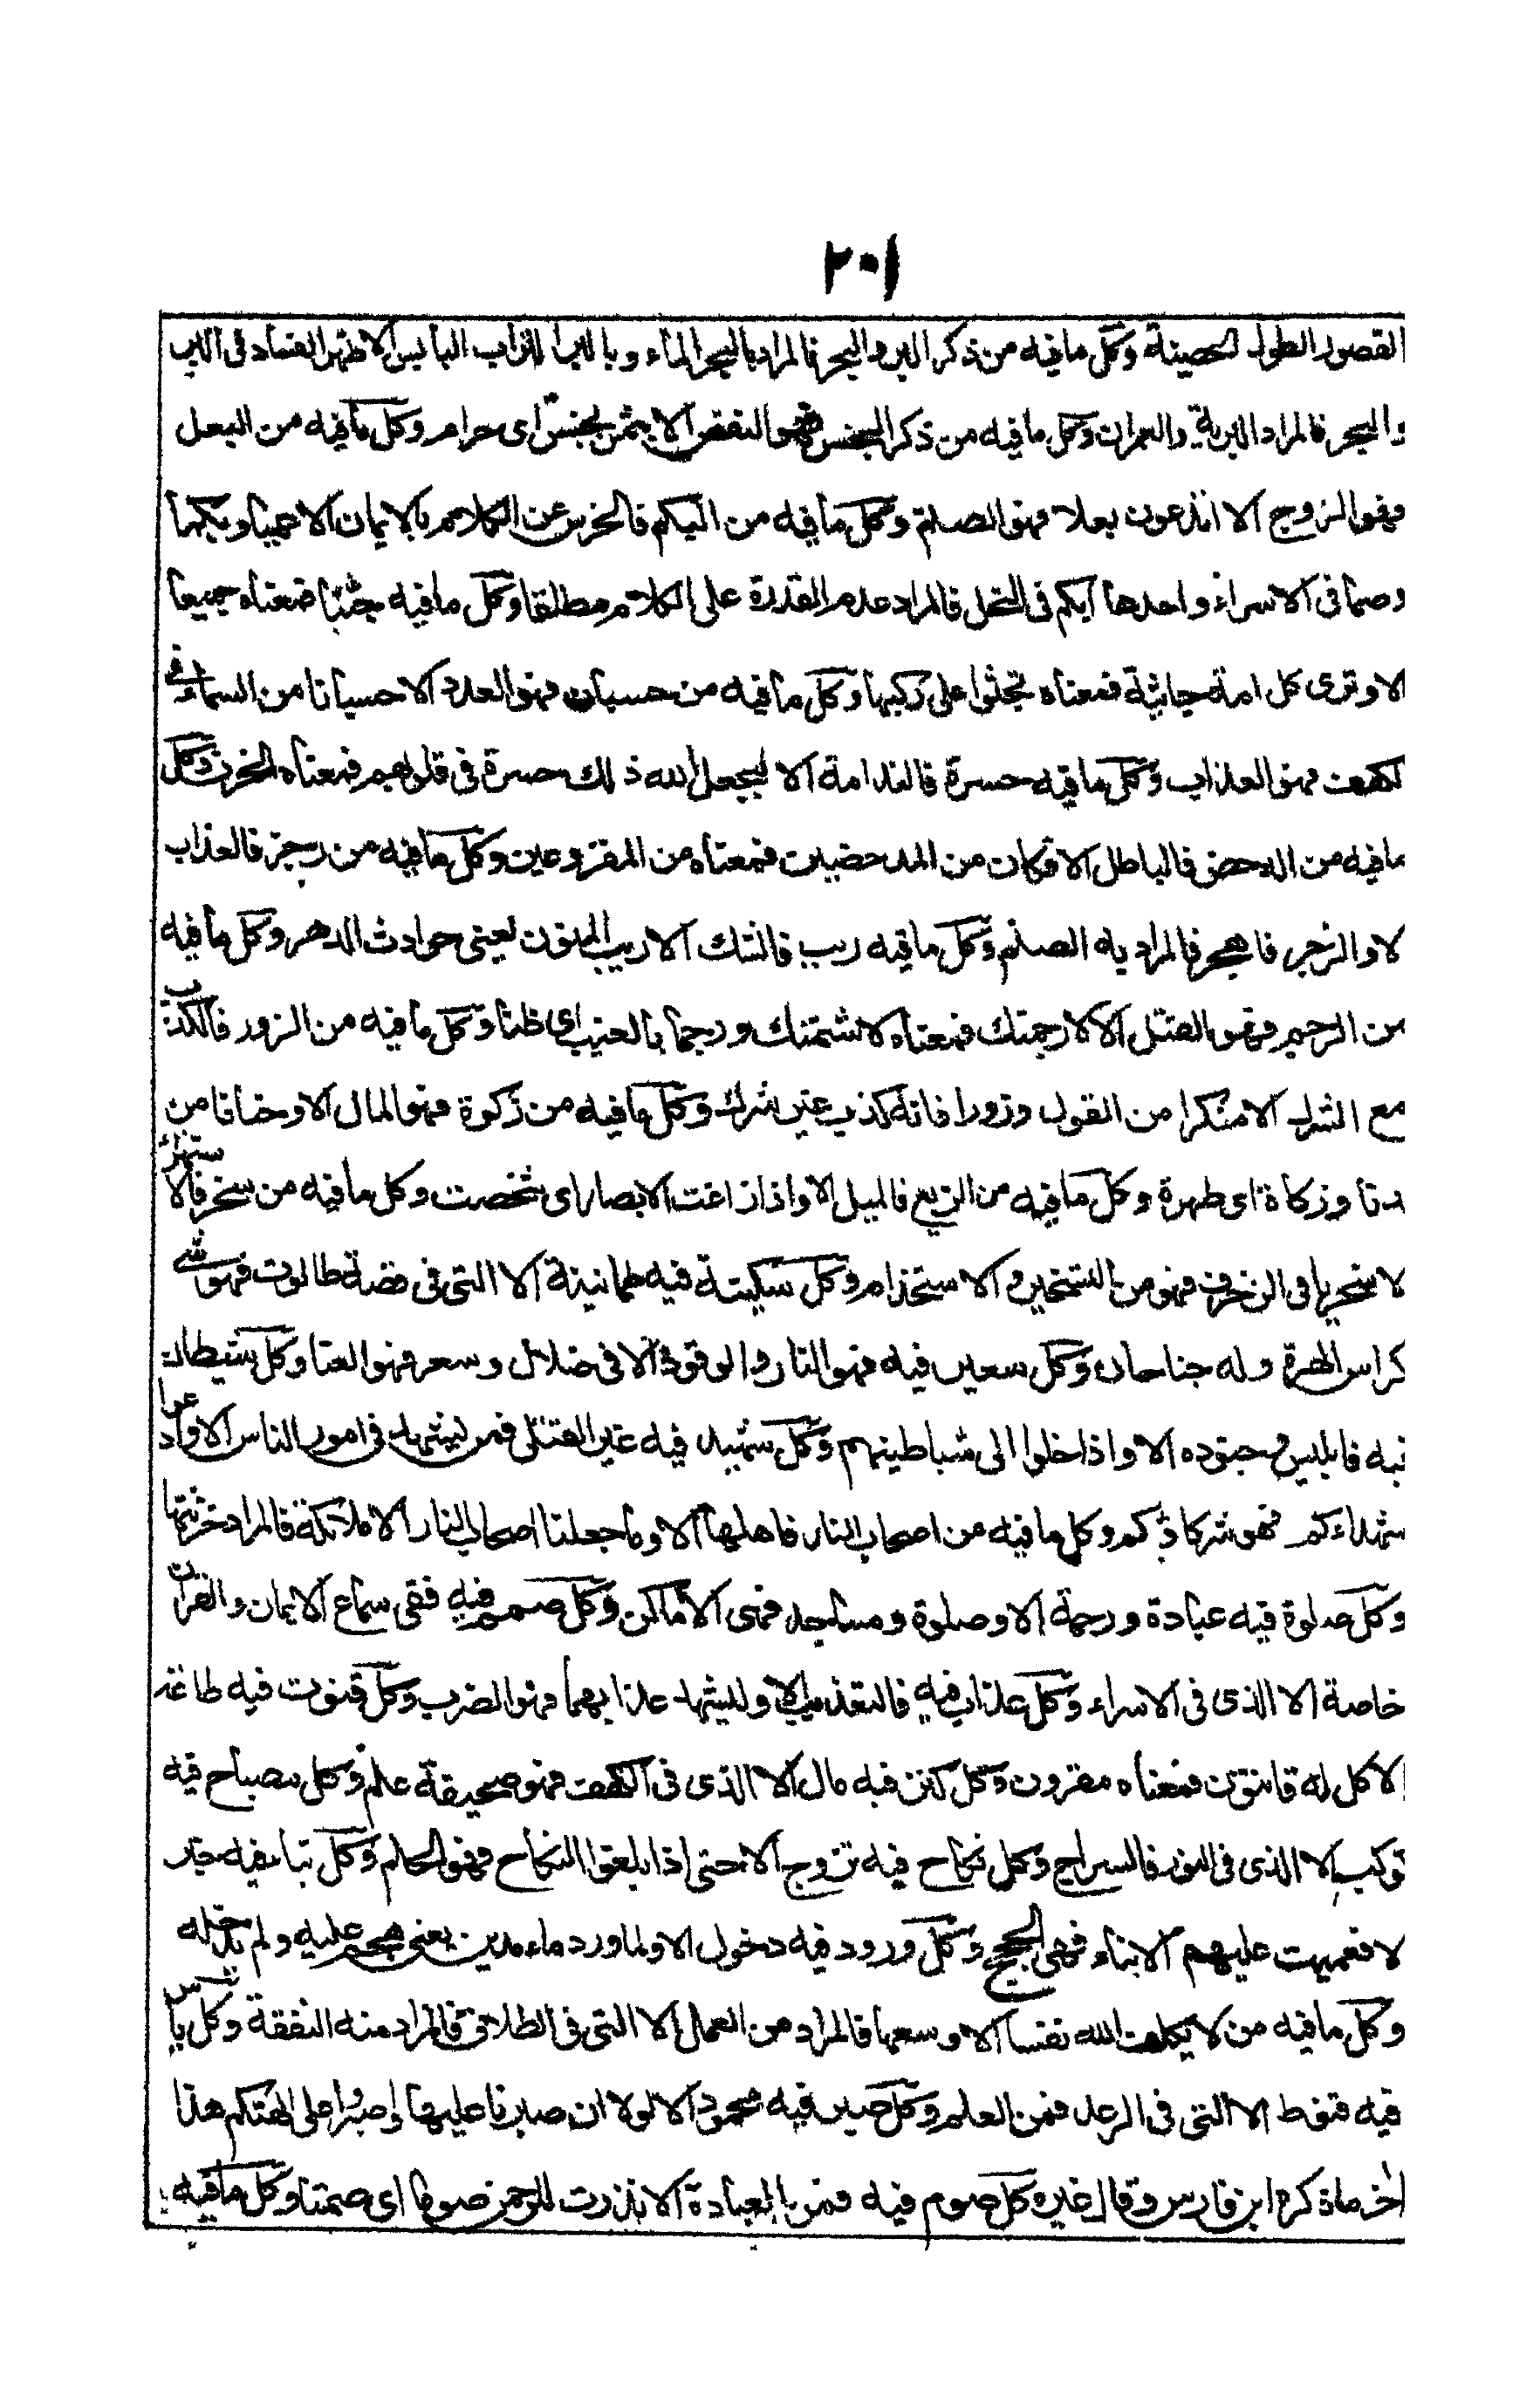 ٢٠١
القصور الطوال الحصينة وكل ما فيه من ذكر البر والبحر فالمراد بالبحر الماء وبالبر التراب اليابس الا ظهر الفساد فى البر
والبحر فالمراد البرية والعمران وكل ما فيه من ذكر البخس فهو النقص الا بثمن بخس اى حرام وكل ما فيه من البعل
فهو الزوج الا اتدعون بعلا فهو الصنم وكل ما فيه من البكم فالخرس عن الكلام بالايمان الا عميا وبكما
وصما فى الاسراء واحدها ابكم فى النحل فالمراد عدم القدرة على الكلام مطلقا وكل ما فيه جثيا فمعناه جميعا
الا وترى كل امة جاثية فمعناه تجثوا على ركبها وكل ما فيه من حسبان فهو العدد الا حسبانا من السماء فى
الكهف فهو العذاب وكل ما فيه حسرة فالندامة الا ليجعل الله ذلك حسرة فى قلوبهم فمعناه الحزن وكل
ما فيه من الدحض فالباطل الا فكان من المدحضين فمعناه من المقروعين وكل ما فيه من رجز فالعذاب
الا والرجز فاهجر فالمراد به الصنم وكل ما فيه ريب فالشك الا ريب المنون يعنى حوادث الدهر وكل ما فيه
من الرجم فهو القتل الا لارجمنك فمعناه لاشتمنك ورجما بالغيب اى ظنا وكل ما فيه من الزور فالكذب
مع الشرك الا منكرا من القول وزورا فانه كذب غير شرك وكل ما فيه من زكوة فهو المال الا وحنانا من
لدنا وزكاة اى طهرة وكل ما فيه من الزيغ فالميل الا واذ زاغت الابصار اى شخصت وكل ما فيه من سخر فالاستهزاء
الا سخريا فى الزخرف فهو من التسخير والاستخدام وكل سكينة فيه طمانينة الا التى فى قصة طالوت فهو شى
كراس الهرة وله جناحان وكل سعير فيه فهو النار والوقود الا فى ضلال وسعر فهو العنا وكل شيطان
فيه فابليس وجنوده الا واذا خلوا الى شياطينهم وكل شهيد فيه غير القتلى فمن يشهد فى امور الناس الا وادعوا
شهداءكم فهو شركاؤكم وكل ما فيه من اصحاب النار فاهلها الا وما جعلنا اصحاب النار الا ملائكة فالمراد خزنتها
وكل صلوة فيه عبادة ورحمة الا وصلوة ومساجد فهى الاماكن وكل صمم فيه ففى سماع الايمان والقران
خاصة الا الذى فى الاسراء وكل عذاب فيه فالتعذيب الا وليشهد عذابهما فهو الضرب وكل قنوت فيه طاعة
الا كل له قانتون فمعناه مقرون وكل كنز فيه مال الا الذى فى الكهف فهو صحيفة علم وكل مصباح فيه
كوكب الا الذى فى النور فالسراج وكل نكاح فيه تزوج الا حتى اذا بلغوا النكاح فهو الحلم وكل نبا فيه خبر
الا فعميت عليهم الانباء فهى الحجج وكل ورود فيه دخول الا ولما ورد ماء مدين يعنى هجم عليه ولم يدخله
وكل ما فيه من لا يكلف الله نفسا الا وسعها فالمراد من العمل الا التى فى الطلاق فالمراد منه النفقة وكل ياس
فيه قنوط الا التى فى الرعد فمن العلم وكل صبر فيه محمود الا لولا ان صبرنا عليها واصبروا على الهتكم هذا
اخر ما ذكره ابن فارس وقال غيره كل صوم فيه فمن العبادة الا نذرت للرحمن صوما اى صمتا وكل ما فيه